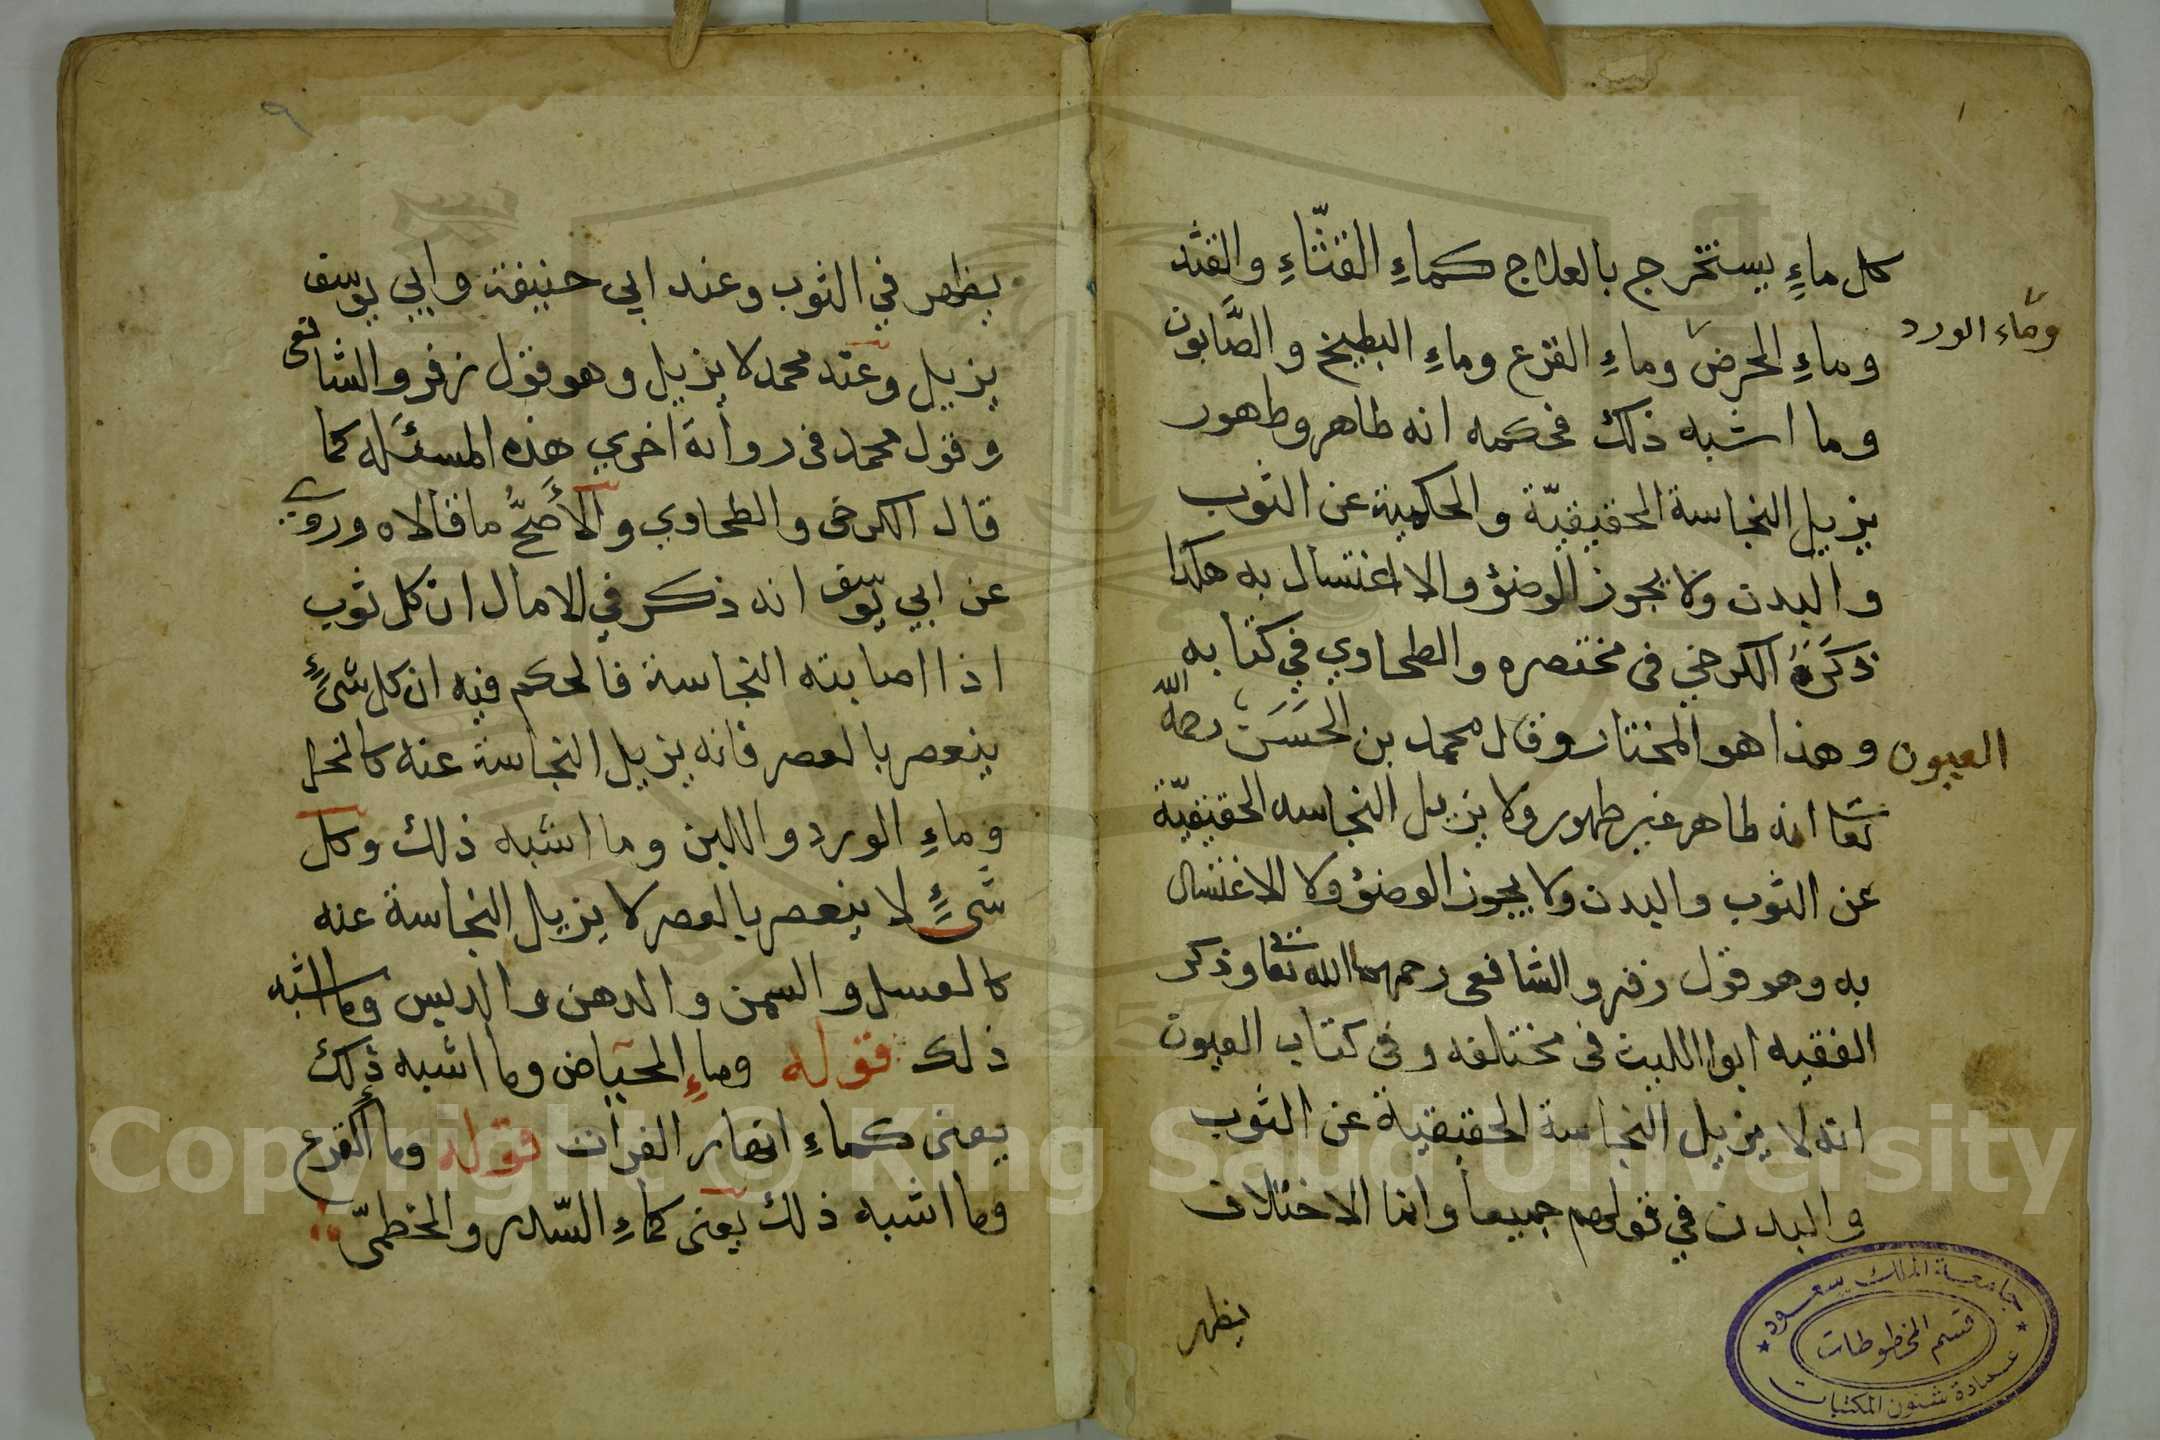 كل ماءٍ يستخرج بالعلاج كماءِ القثّاءِ والقثد
وماءِ الحرض وماءِ القرع وماءِ البطيخ والصَّابون
وماء الورد
وما اشبه ذلك فحكمه انه طاهر وطهور
يزيل النجاسة الحقيقيّة والحكمية عن الثوب
والبدن ولا يجوز الوضؤ والاغتسال به هكذا
ذكَرَهُ الكرخي في مختصره والطحاوي في كتابه
وهذا هو المختار وقال محمد بن الحَسَن رحمه الله
العيون
تعا انه طاهر غير طهور ولا يزيل النجاسه الحقيقيّة
عن الثوب والبدن ولا يجوز الوضؤ ولا الاغتسال
به وهو قول زفر والشافعى رحمهما الله تعا وذكر
الفقيه ابوا الليث فى مختلفه وفى كتاب العيون
انه لا يزيل النجاسة الحقيقية عن الثوب
والبدن في قولهم جميعا وانما الاختلاف
يظهر
جامعة الملك سعود
قسم المخطوطات
عمادة شئون المكتبات
٩
يظهر في الثوب وعند ابي حنيفة وابي يوسف
يزيل وعند محمد لا يزيل وهو قول زفر والشافعى
وقول محمد فى رواية اخري هذه المسئله كما
قال الكرخى والطحاوي والأَصَحُّ ما قالاه وروي
عن ابي يوسف انه ذكر في الامال ان كل ثوب
اذا اصابته النجاسة فالحكم فيه ان كل شئٍ
ينعصر بالعصر فانه يزيل النجاسة عنه كالخل
وماءِ الورد واللبن وما اشبه ذلك وكل
شئٍ لا ينعصر بالعصر لا يزيل النجاسة عنه
كالعسل والسمن والدهن والدبس وما اشبه
ذلك قوله وماءِ الحياض وما اشبه ذلك
يعنى كماءِ انهار الفرات قوله وما القرع
وما اشبه ذلك يعنى كماءِ السّدر والخطمىّ
Copyright © King Saud University
1957